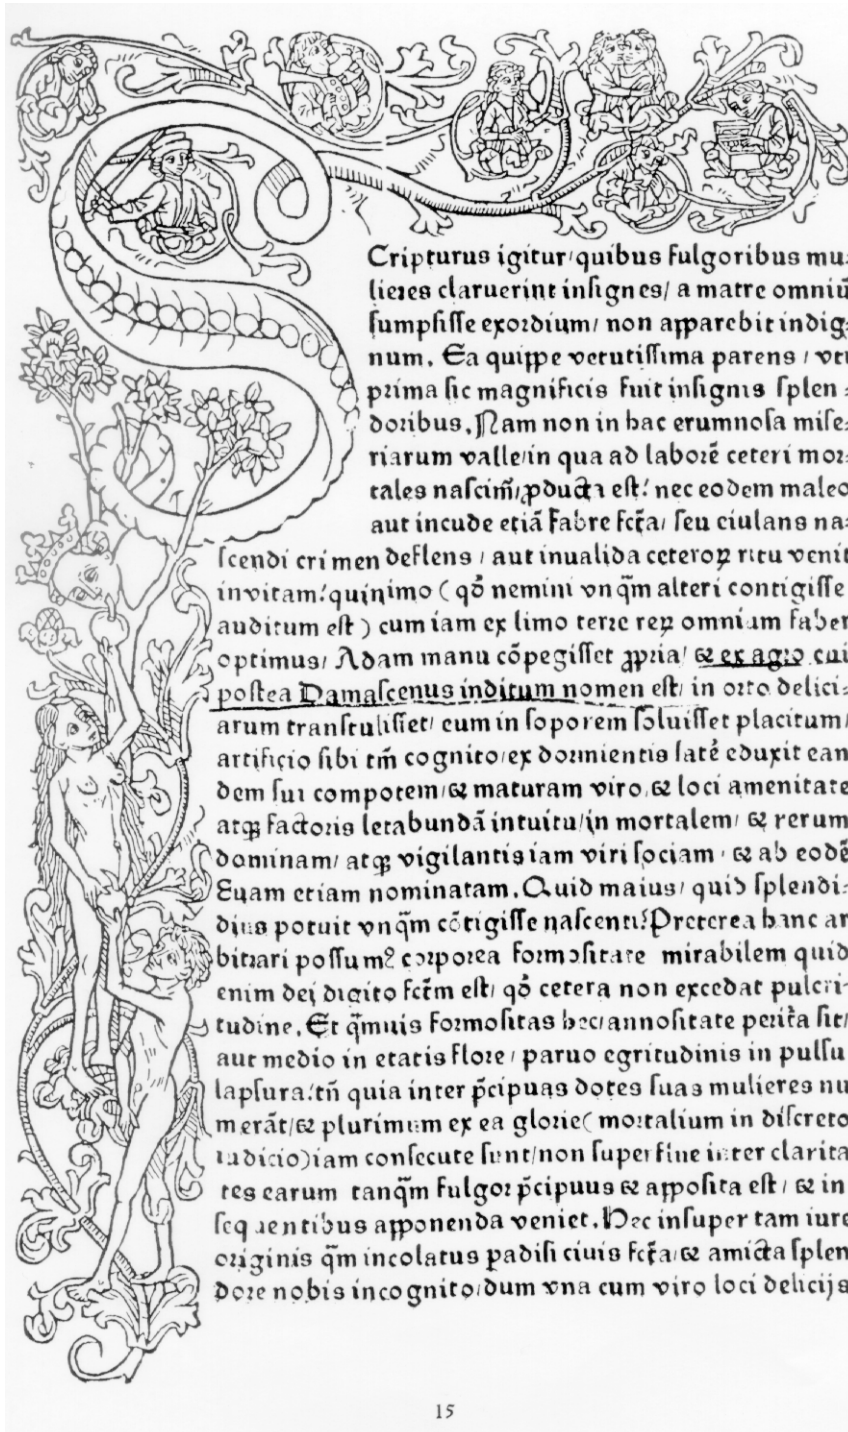 Scripturus igitur/quibus fulgoribus mu⸗
lieres claruerint insignes/ a matre omniū
sumpsisse exordium/ non apparebit indig⸗
num. Ea quippe vetutissima parens / vti
prima sic magnificis fuit insignis splen⸗
doribus. Nam non in hac erumnosa mise⸗
riarum valle/in qua ad laborē ceteri mor⸗
tales nascim̃/ ꝓducta est: nec eodem maleo
aut incude etiā fabre fct̃a/ seu eiulans na⸗
scendi crimen deflens / aut inualida ceteroꝝ ritu venit
in vitam: quinimo ( qđ nemini vnq̃m alteri contigisse
auditum est ) cum iam ex limo terre reꝝ omnium faber
optimus/ Adam manu cōpegisset ꝓpria/ & ex agro cui
postea Damascenus inditum nomen est/ in orto delici⸗
arum transtulisset/ cum in soporem soluisset placitum/
artificio sibi tm̃ cognito/ex dormientis latē eduxit ean
dem sui compotem/& maturam viro/& loci amenitate
atqꝫ factoris letabundā intuitu/in mortalem/ & rerum
dominam/ atqꝫ vigilantis iam viri sociam / & ab eodē
Euam etiam nominatam. Quid maius/ quid splendi⸗
dius potuit vnq̃m cōtigisse nascenti? Preterea hanc ar
bitrari possum⁹ corporea formositate mirabilem quid
enim dei digito fct̃m est/ qđ cetera non excedat pulcri⸗
tudine. Et q̃muis formositas hec/annositate perit̃a sit/
aut medio in etatis flore / paruo egritudinis in pulsu
lapsura: tñ quia inter p̃cipuas dotes suas mulieres nu
merāt/& plurimum ex ea glorie( mortalium in discreto
iudicio)iam consecute sunt/non superflue inter clarita
tes earum tanq̃m fulgor p̃cipuus & apposita est / & in
sequentibus apponenda veniet. Hec insuper tam iure
originis q̃m incolatus padisi ciuis fct̃a/& amicta splen
dore nobis incognito/dum vna cum viro loci delicijs
15